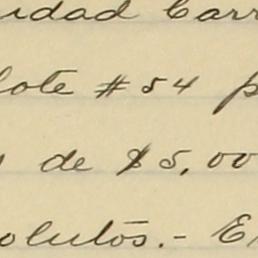 idad Carr
lote #54 p
de $5,00
olutos.- E